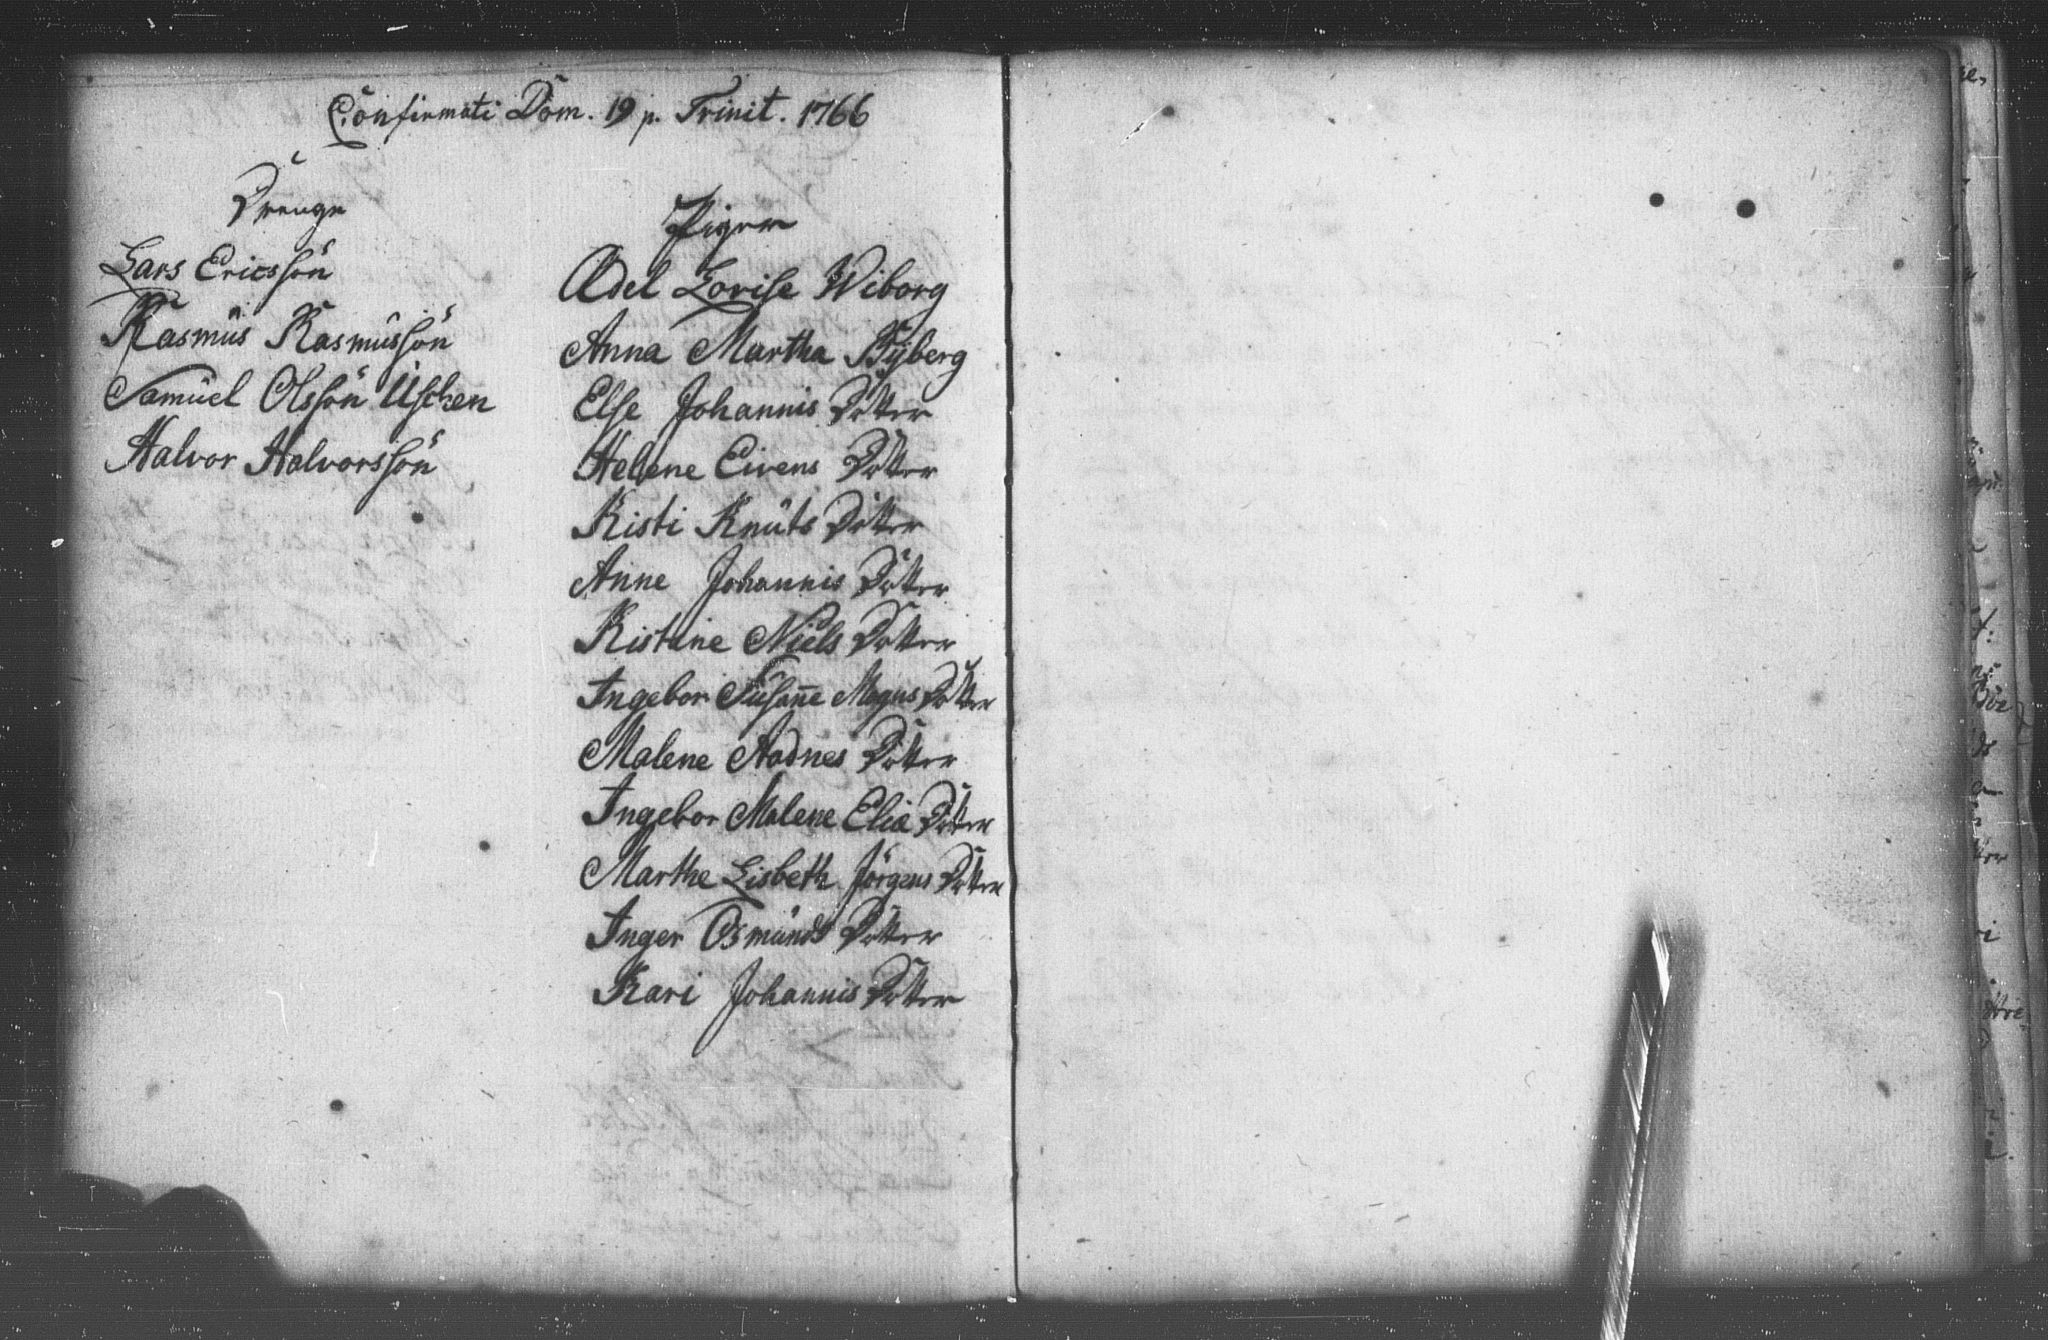 Confirmati Dom. 19 p. Trinit. 1766
Drenge
Lars Ericssön
Rasmus Rasmussön
Samuel Olssön Uschen
Halvor Halvorssön
Piger
Edel Lovise Wiborg
Anna Martha Bÿberg
Else Johannis Dotter
Helene Eivens Dotter
Kisti Knuts Dotter
Anne Johannis Dotter
Kistine Niels Dotter
Ingebor Susañe Magns Dotter
Malene Aadnes Dotter
Ingebor Malene Elia Dotter
Marthe Lisbeth Jörgens Dotter
Inger Osmunds Dotter
Kari Johannis Dotter